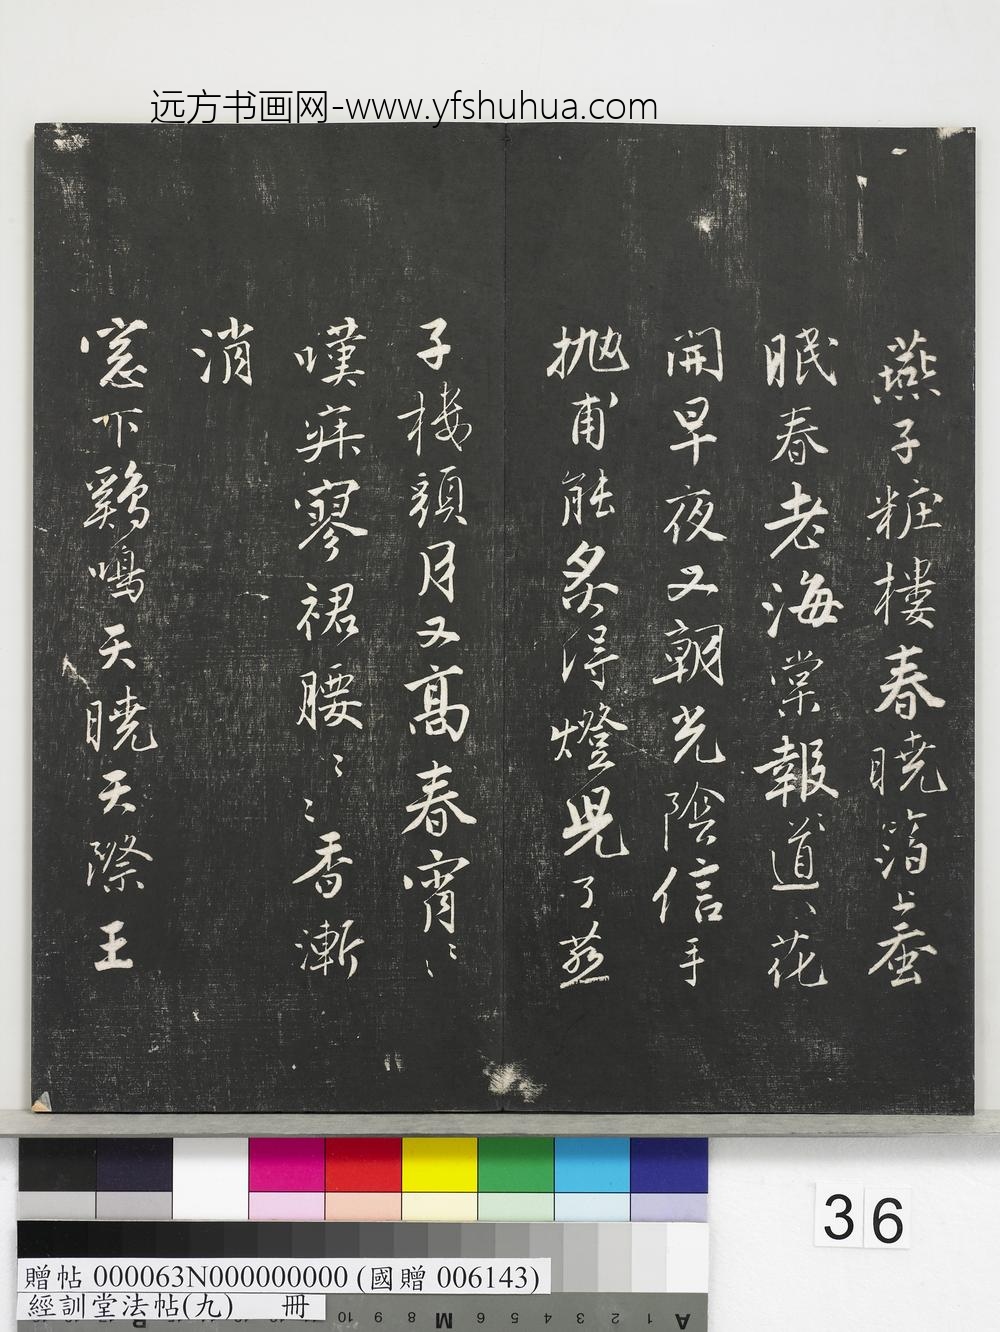 远方书画网-www.yfshuhua.com
燕子粧樓春曉箔上蚕
眠春老海棠報道丶花
開早夜又朝光陰信手
抛甫能炙得燈兒了燕
子楼頭月又高春宵〻
嘆寂寥裙腰〻〻香漸
消
窓下鷄鳴天曉天際王
36
贈帖 000063N000000000 (國贈 006143)
經訓堂法帖(九) 冊
10 9 8 7 M 6 5 4 3 2 1 A